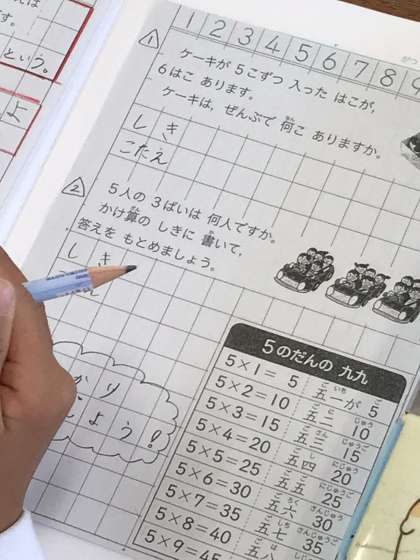 1 2 3 4 5 6 7 8 9
1
ケーキが 5こずつ 入った はこが,
6はこ あります。
ケーキは, ぜんぶで 何こ ありますか。
しき
こたえ
2
5人の 3ばいは 何人ですか。
かけ算の しきに 書いて,
答えを もとめましょう。
しき
5のだんの 九九
5×1=5 五一が 5
5×2=10 五二 10
5×3=15 五三 15
5×4=20 五四 20
5×5=25 五五 25
5×6=30 五六 30
5×7=35 五七 35
5×8=40 五八
5×9=45
という。
よ